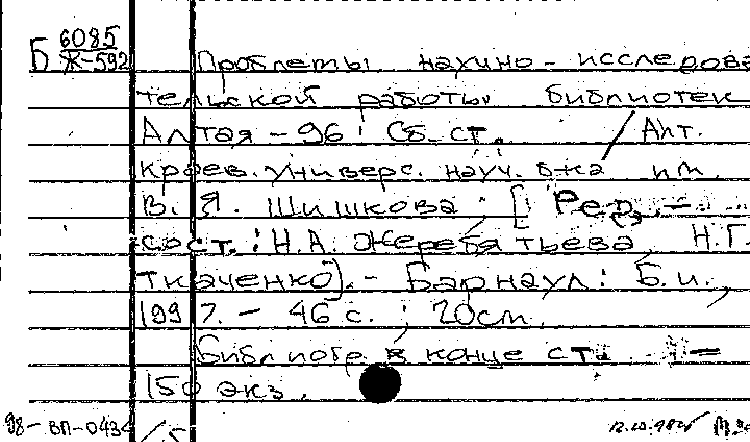 Б 6085
Ж-592
Проблемы научно-исследова
тельской работы библиотек
Алтая - 96 : Сб. ст. / Алт.
краев. универс. науч. б-ка им.
В. Я. Шишкова ; [Ред.-
сост. : Н.А. Жеребятьева, Н.Г.
Ткаченко]. - Барнаул : Б.и.,
1997. - 46 с. ; 20см.
Библиогр. в конце ст.
150 экз.
98-ВП-0434